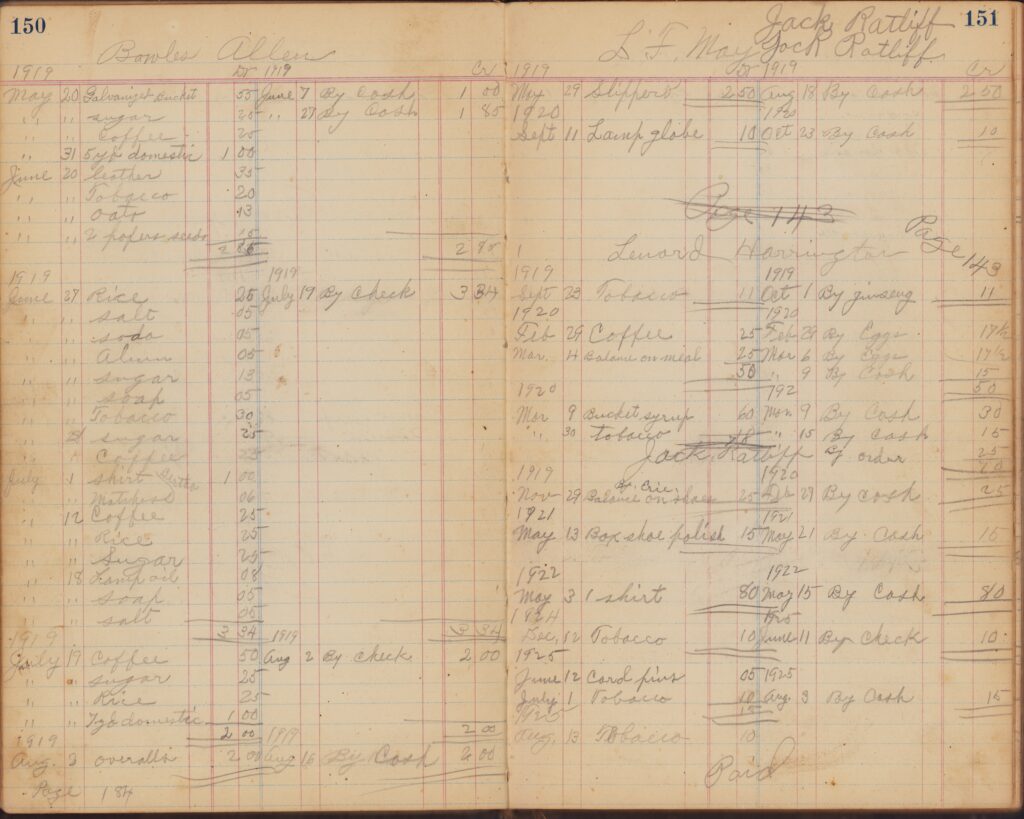 150
Bowles Allen
1919 Dr 1919 Cr
May 20 Galvanized bucket 55 June 7 By Cash 1 00
" " sugar 25 " 27 By Cash 1 85
" " Coffee 25
" 31 5 yd domestic 1 00
June 20 leather 35
" " Tobacco 20
" " oats 13
" " 2 papers seeds
2 85 2 85
1919 1919
June 27 Rice 25 July 19 By Check 3 34
" " salt 05
" " soda 05
" " Alum 05
" " sugar 13
" " soap 05
" " Tobacco 30
" sugar 25
" " Coffee 25
July 1 shirt 1 00
" " Matches 06
" 12 Coffee 25
" " Rice 25
" " Sugar 25
" 18 Lamp oil 08
" " soap 05
" " salt 05
1919 3 34 1919 3 34
July 19 Coffee 50 Aug 2 By Check 2 00
" " sugar 25
" " Rice 25
" " 7 yd domestic 1 00
1919 2 00 1919 2 00
Aug. 2 overalls 2 00 Aug 16 By Cash 2 00
Page 184
151
Jack Ratliff
L F. May Jack Ratliff
1919 Dr 1919 Cr
May 29 Slippers 2 50 Aug 18 By Cash 2 50
1920 1920
Sept 11 Lamp globe 10 Oct 23 By Cash 10
Page 143
Page 143
Lenord Harrington
1919 1919
Sept 23 Tobacco 11 Oct 1 By ginseng 11
1920 1920
Feb 29 Coffee 25 Feb 29 By Eggs 17½
Mar. 4 Balance on meal 25 Mar 6 By Eggs 17½
50 " 9 By Cash 15
1920 192 50
Mar 9 Bucket syrup 60 Mar 9 By Cash 30
" 30 tobacco " 15 By Cash 15
Jack Ratliff By order 25
1919 1920
Nov 29 Balance on shoes 25 27 By cash 25
1921 1921
May 13 Box shoe polish 15 May 21 By Cash 15
1922 1922
May 3 1 shirt 80 May 15 By Cash 80
1924 1925
Dec, 12 Tobacco 10 June 11 By Check 10
1925
June 12 Card pins 05 1925
July 1 Tobacco 10 Aug 3 By Cash 15
1925 15
Aug. 13 Tobacco 10
Paid